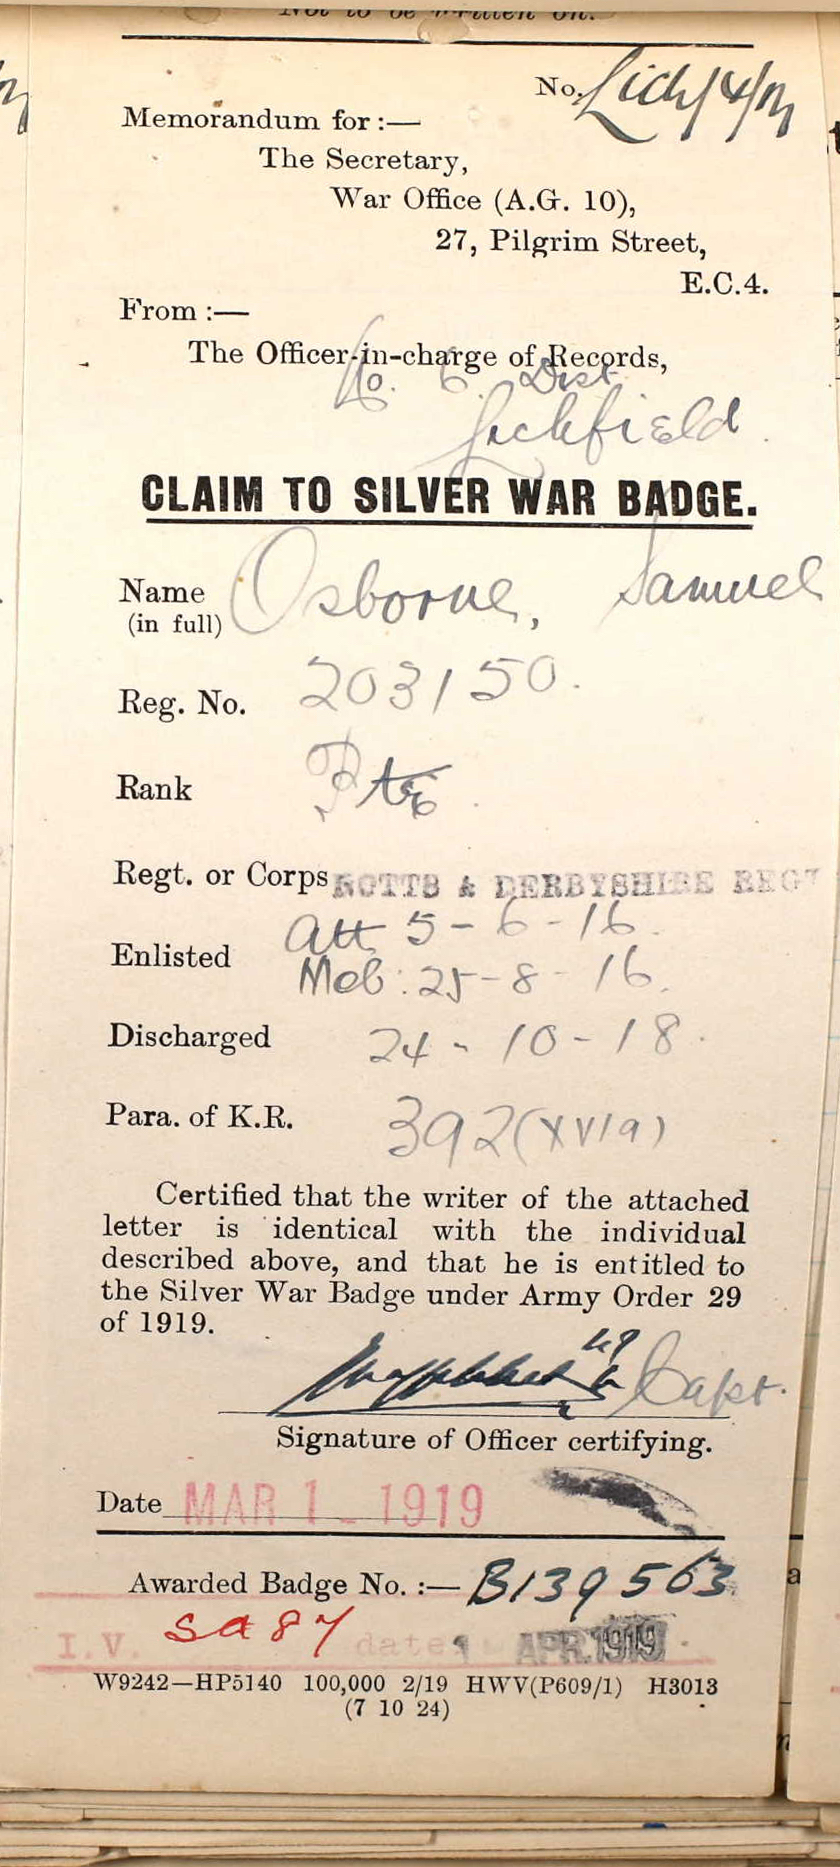 Not to be written on.
No. Lich/4/M
Memorandum for :—
The Secretary,
War Office (A.G. 10),
27, Pilgrim Street,
E.C.4.
From :—
The Officer-in-charge of Records,
No. 6. Dist
Lichfield.
CLAIM TO SILVER WAR BADGE.
Name (in full) Osborne, Samuel
Reg. No. 203150.
Rank Pte.
Regt. or Corps NOTTS & DERBYSHIRE REGT
Enlisted Att 5-6-16.
Mob: 25-8-16.
Discharged 24-10-18.
Para. of K.R. 392(XVIa)
Certified that the writer of the attached
letter is identical with the individual
described above, and that he is entitled to
the Silver War Badge under Army Order 29
of 1919.
Capt.
Signature of Officer certifying.
Date MAR 1 - 1919
Awarded Badge No. :— B139563
I.V. Sa87 date 1 APR. 1919
W9242—HP5140 100,000 2/19 HWV(P609/1) H3013
(7 10 24)